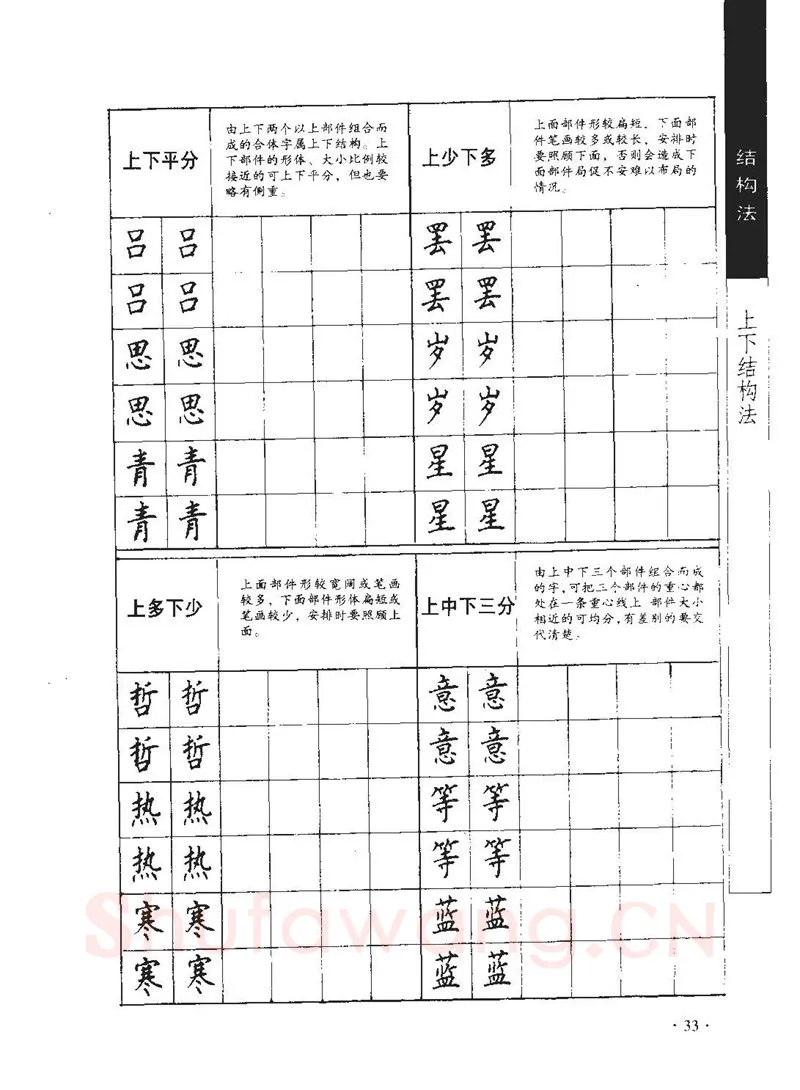 结构法
上下结构法
上下平分
由上下两个以上部件组合而
成的合体字属上下结构。上
下部件的形体、大小比例较
接近的可上下平分，但也要
略有侧重。
吕 吕
吕 吕
思 思
思 思
青 青
青 青
上少下多
上面部件形较扁短、下面部
件笔画较多或较长，安排时
要照顾下面，否则会造成下
面部件局促不安难以布局的
情况。
罢 罢
罢 罢
岁 岁
岁 岁
星 星
星 星
上多下少
上面部件形较宽阔或笔画
较多，下面部件形体扁短或
笔画较少，安排时要照顾上
面。
哲 哲
哲 哲
热 热
热 热
寒 寒
寒 寒
上中下三分
由上中下三个部件组合而成
的字，可把三个部件的重心都
处在一条重心线上 部件大小
相近的可均分，有差别的要交
代清楚。
意 意
意 意
等 等
等 等
蓝 蓝
蓝 蓝
Shufawang.CN
·33·